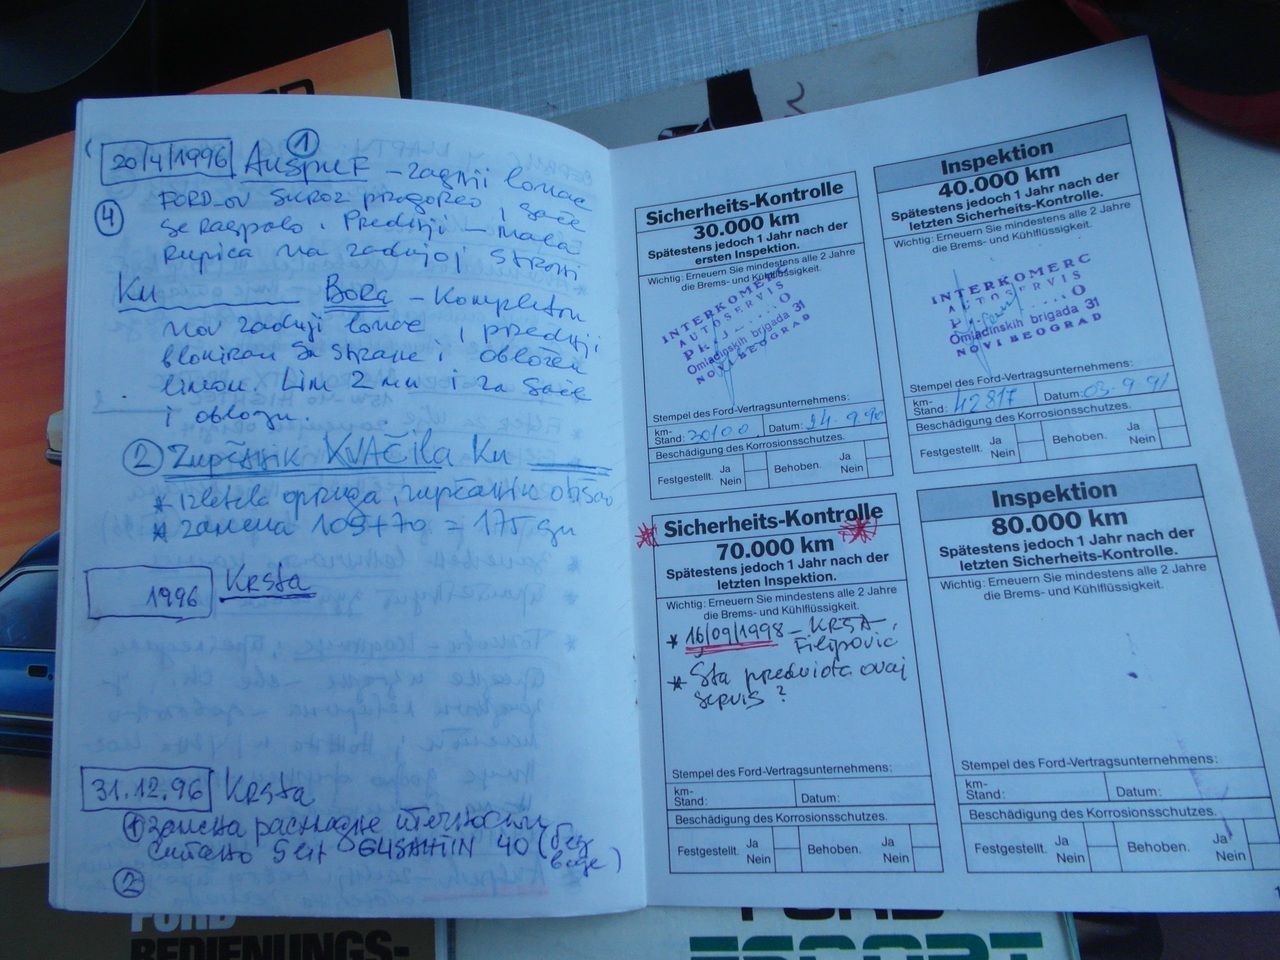 ①
20/4/1996 AUSPUF – zadnji lonac
④ FORD-ov skroz progoreo, sače
se raspalo. Prednji – mala
rupica na zadnjoj strani
Ku Bora – Kompletan
nov zadnji lonac, prednji
blokiran sa strane i obložen
limom. Lim 2 mm i za sače
i oblogu.
② Zupčanik KVAČILA Ku
* izletela opruga, zupčanik
* zamena 105+70 = 175 din
1996 Krsta
31.12.96 Krsta
① Замена расхладне течности
5 lit GLISANTIN 40 (без
воде)
②
Sicherheits-Kontrolle
30.000 km
Spätestens jedoch 1 Jahr nach der
ersten Inspektion.
Wichtig: Erneuern Sie mindestens alle 2 Jahre
die Brems- und Kühlflüssigkeit.
INTERKOMERC
AUTOSERVIS
Omladinskih brigada 31
NOVI BEOGRAD
Stempel des Ford-Vertragsunternehmens:
km-
Stand: Datum: 24.9.90
Beschädigung des Korrosionsschutzes.
Festgestellt. Ja Behoben. Ja
Nein Nein
Inspektion
40.000 km
Spätestens jedoch 1 Jahr nach der
letzten Sicherheits-Kontrolle.
Wichtig: Erneuern Sie mindestens alle 2 Jahre
die Brems- und Kühlflüssigkeit.
INTERKOMERC
AUTOSERVIS
Omladinskih brigada 31
NOVI BEOGRAD
Stempel des Ford-Vertragsunternehmens:
km-
Stand: 42817 Datum: 03.9.91
Beschädigung des Korrosionsschutzes.
Festgestellt. Ja Behoben. Ja
Nein Nein
Sicherheits-Kontrolle
70.000 km
Spätestens jedoch 1 Jahr nach der
letzten Inspektion.
Wichtig: Erneuern Sie mindestens alle 2 Jahre
die Brems- und Kühlflüssigkeit.
* 16/09/1998 – KRSTA,
Filipović
* Šta predviđa ovaj
servis?
Stempel des Ford-Vertragsunternehmens:
km-
Stand: Datum:
Beschädigung des Korrosionsschutzes.
Festgestellt. Ja Behoben. Ja
Nein Nein
Inspektion
80.000 km
Spätestens jedoch 1 Jahr nach der
letzten Sicherheits-Kontrolle.
Wichtig: Erneuern Sie mindestens alle 2 Jahre
die Brems- und Kühlflüssigkeit.
Stempel des Ford-Vertragsunternehmens:
km-
Stand: Datum:
Beschädigung des Korrosionsschutzes.
Festgestellt. Ja Behoben. Ja
Nein Nein
FORD
BEDIENUNGS-
FORD
ESCORT